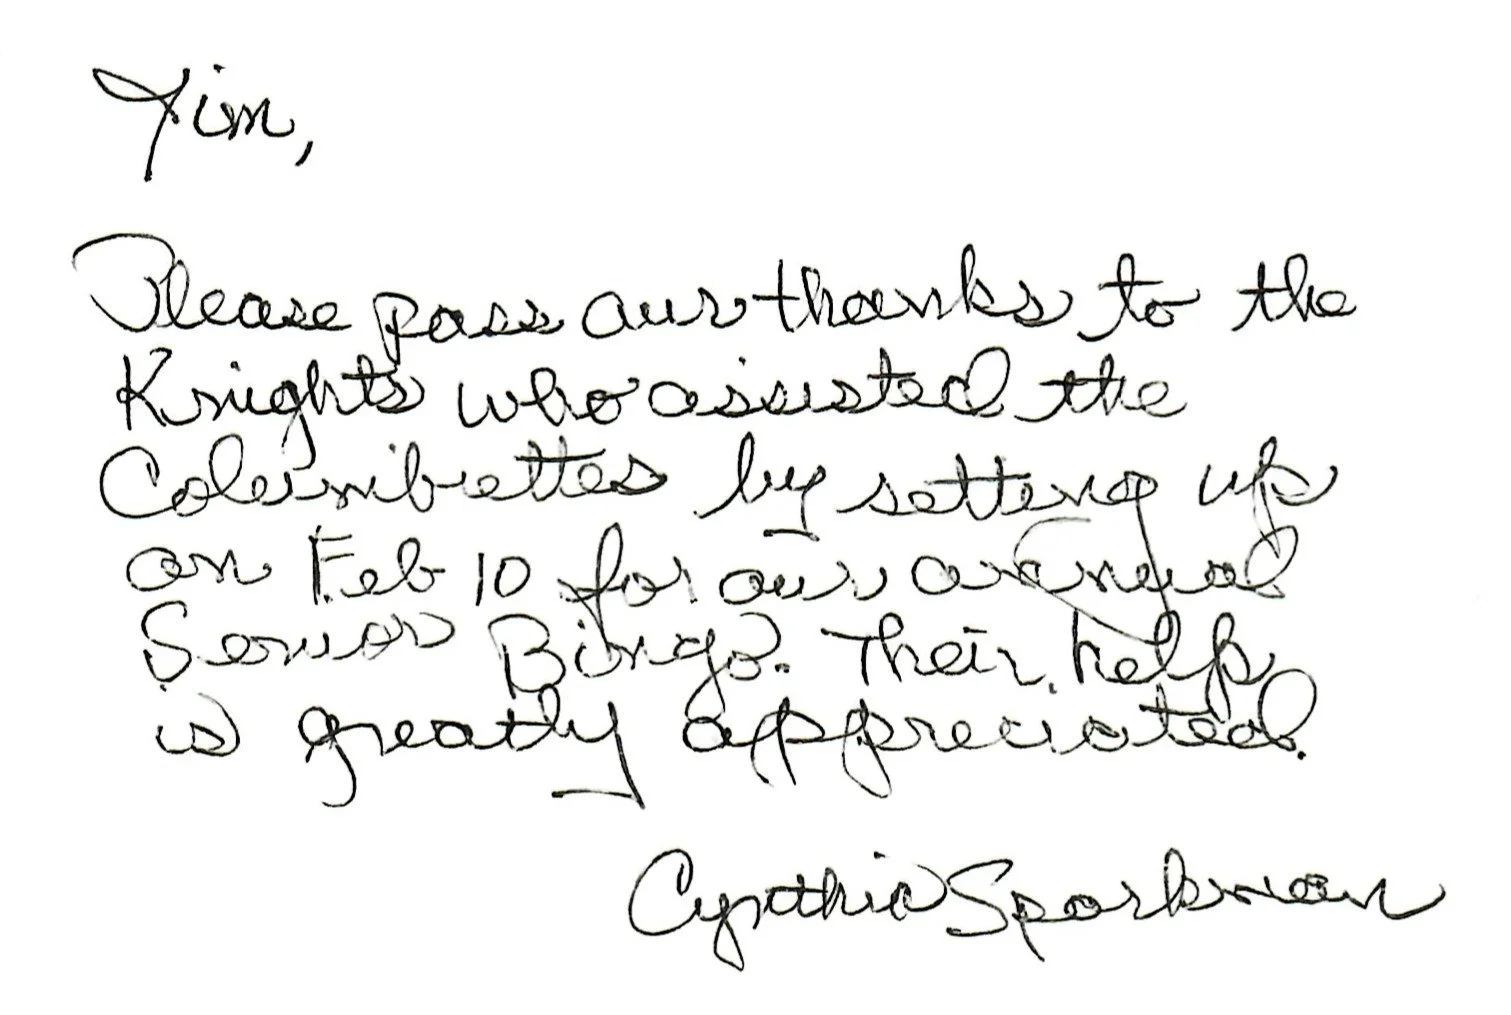 Jim,
Please pass our thanks to the
Knights who assisted the
Columbiettes by setting up
on Feb 10 for our annual
Senior Bingo. Their help
is greatly appreciated.
Cynthia Sparkman